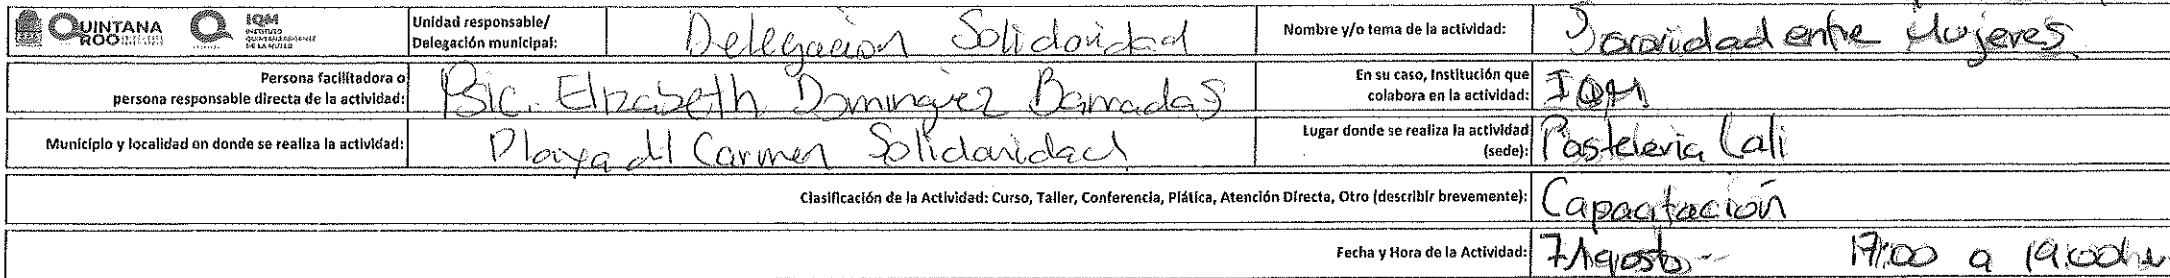 QUINTANA ROO IQM INSTITUTO QUINTANARROENSE DE LA MUJER Unidad responsable/ Delegación municipal: Delegación Solidaridad Nombre y/o tema de la actividad: Sororidad entre Mujeres
Persona facilitadora o persona responsable directa de la actividad: Psic. Elizabeth Dominguez Barradas En su caso, Institución que colabora en la actividad: IQM
Municipio y localidad en donde se realiza la actividad: Playa del Carmen Solidaridad Lugar donde se realiza la actividad (sede): Pasteleria Lali
Clasificación de la Actividad: Curso, Taller, Conferencia, Plática, Atención Directa, Otro (describir brevemente): Capacitación
Fecha y Hora de la Actividad: 7 Agosto -- 17:00 a 19:00 hr